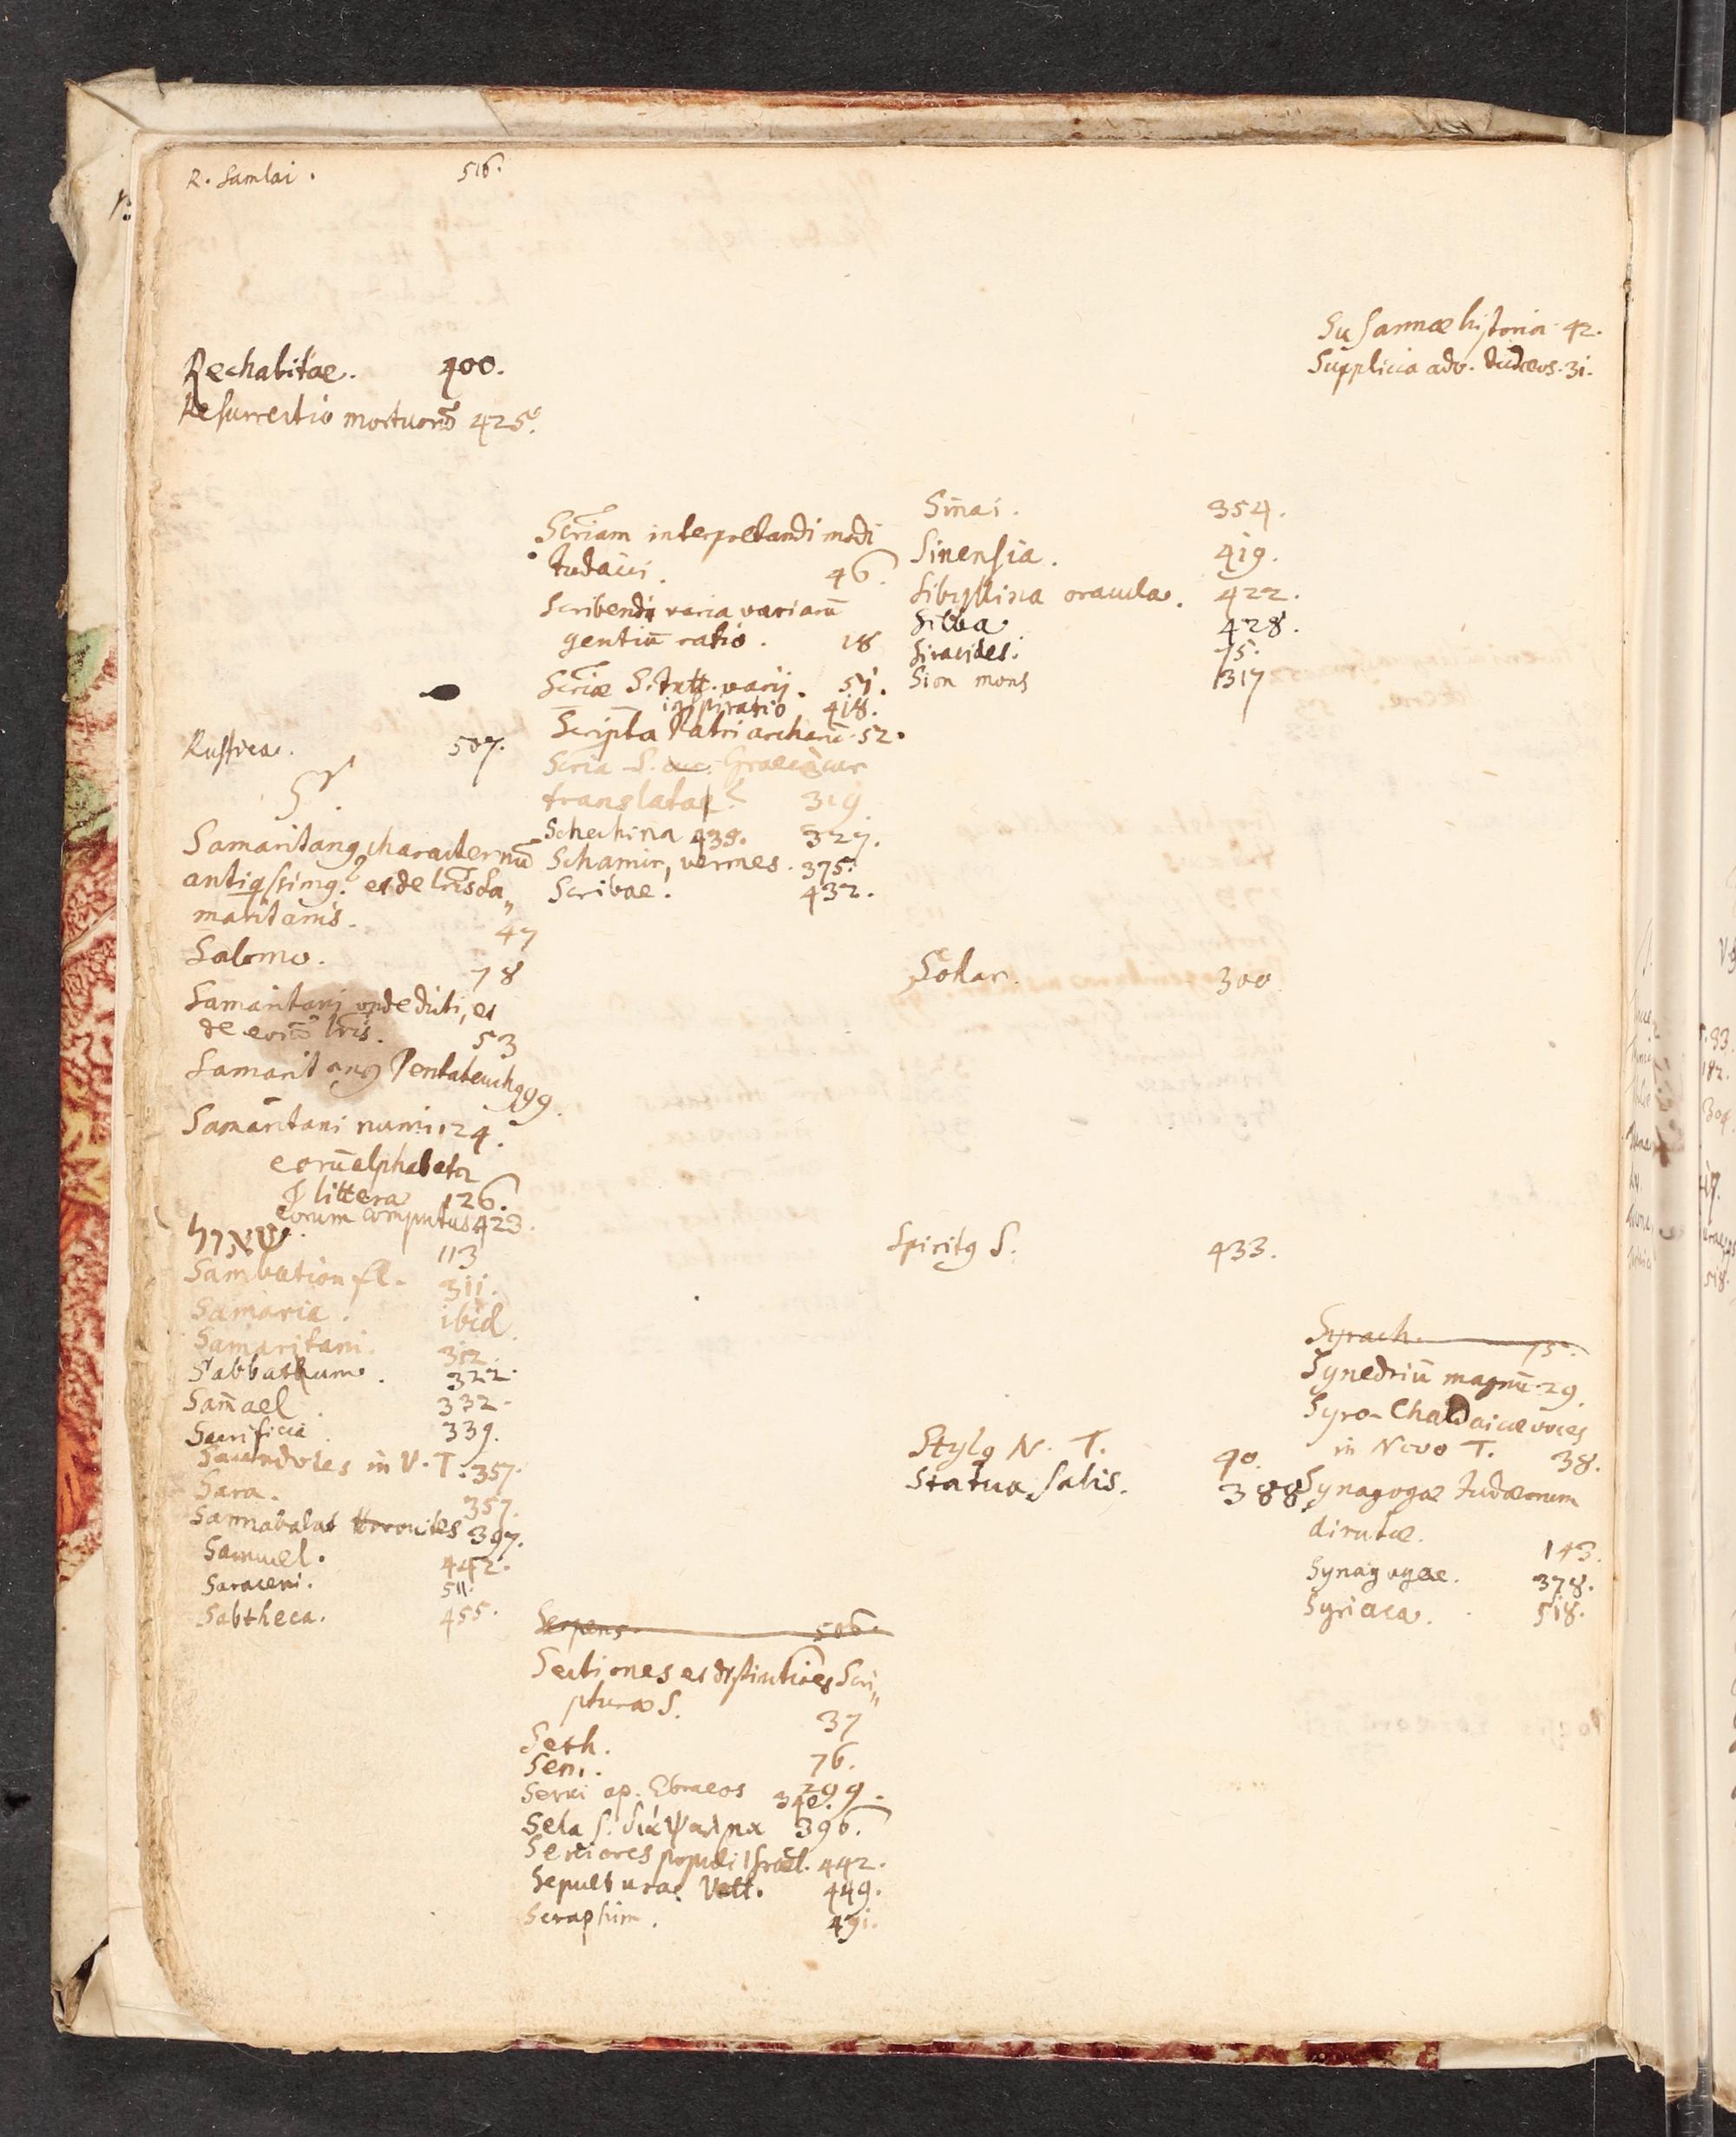 R. Samlai. 516.
Rechabitae. 400.
Resurrectio mortuorũ 425.
Russica. 507.
S.
Samaritanꝯ character nũ
antiqssimꝯ? et de lr̃is Sa„
maritanis. 47
Salomo. 78
Samaritani unde dicti, et
de eorũ lr̃is. 53
Samaritanꝯ Pentateuchꝯ 99.
Samaritani numi 124.
eorũ alphabeta
& littera 126.
eorum computus 423.
113
Sambation fl. 311.
Samaria. ibid.
Samaritani. 312.
Sabbathum. 322.
Sam̃ael 332.
Sacrificia 339.
Sacerdotes in V. T. 357.
Sara. 357.
Sannabalat Horonites 397.
Samuel. 442.
Saraceni. 511.
Sabtheca. 455.
Scr̃iam interpretandi modi
Judaici. 46.
Scribendi varia variarũ
gentiũ ratio. 18
Scr̃iae S. Intt. varij. 51.
inspiratio 418.
Scripta Patriarcharũ. 52.
Scr̃ia S. Graecè cur
translata? 319
Schechina 439. 327.
Schamir, vermes. 375.
Scribae. 432.
Serpens. 506.
Sectiones et distinctiões Scri„
pturae S. 37
Seth. 76.
Sem. 299.
Servi ap. Ebraeos 340.
Sela s. διάψαλμα 396.
Seniores populi Israel. 442.
Sepulturae Vett. 449.
Seraphim. 491.
Sinai. 354.
Sinensia. 419.
Sibyllina oracula. 422.
Silva. 428.
Siracides. 75.
Sion mons 317
Sohar. 300.
Spiritꝯ S. 433.
Stylꝯ N. T. 40.
Statua Salis. 388
Susannae historia 42.
Supplicia adv. Judaeos. 31.
Syrach. 75.
Synedriũ magnũ. 29.
Syro-Chaldaicae voces
in Novo T. 38.
Synagogae Judaeorum
dirutae. 143.
Synagogae. 378.
Syriaca. 518.